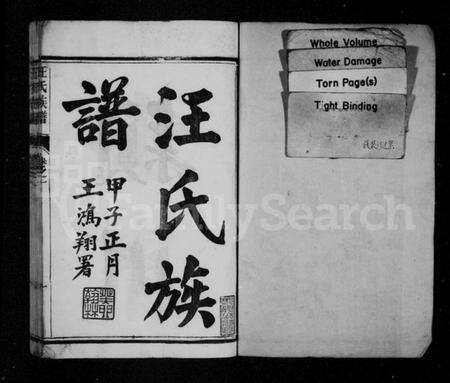 汪氏族
譜
甲子正月
王鴻翔署
汪氏族譜
Whole Volume
Water Damage
Torn Page(s)
Tight Binding
FamilySearch